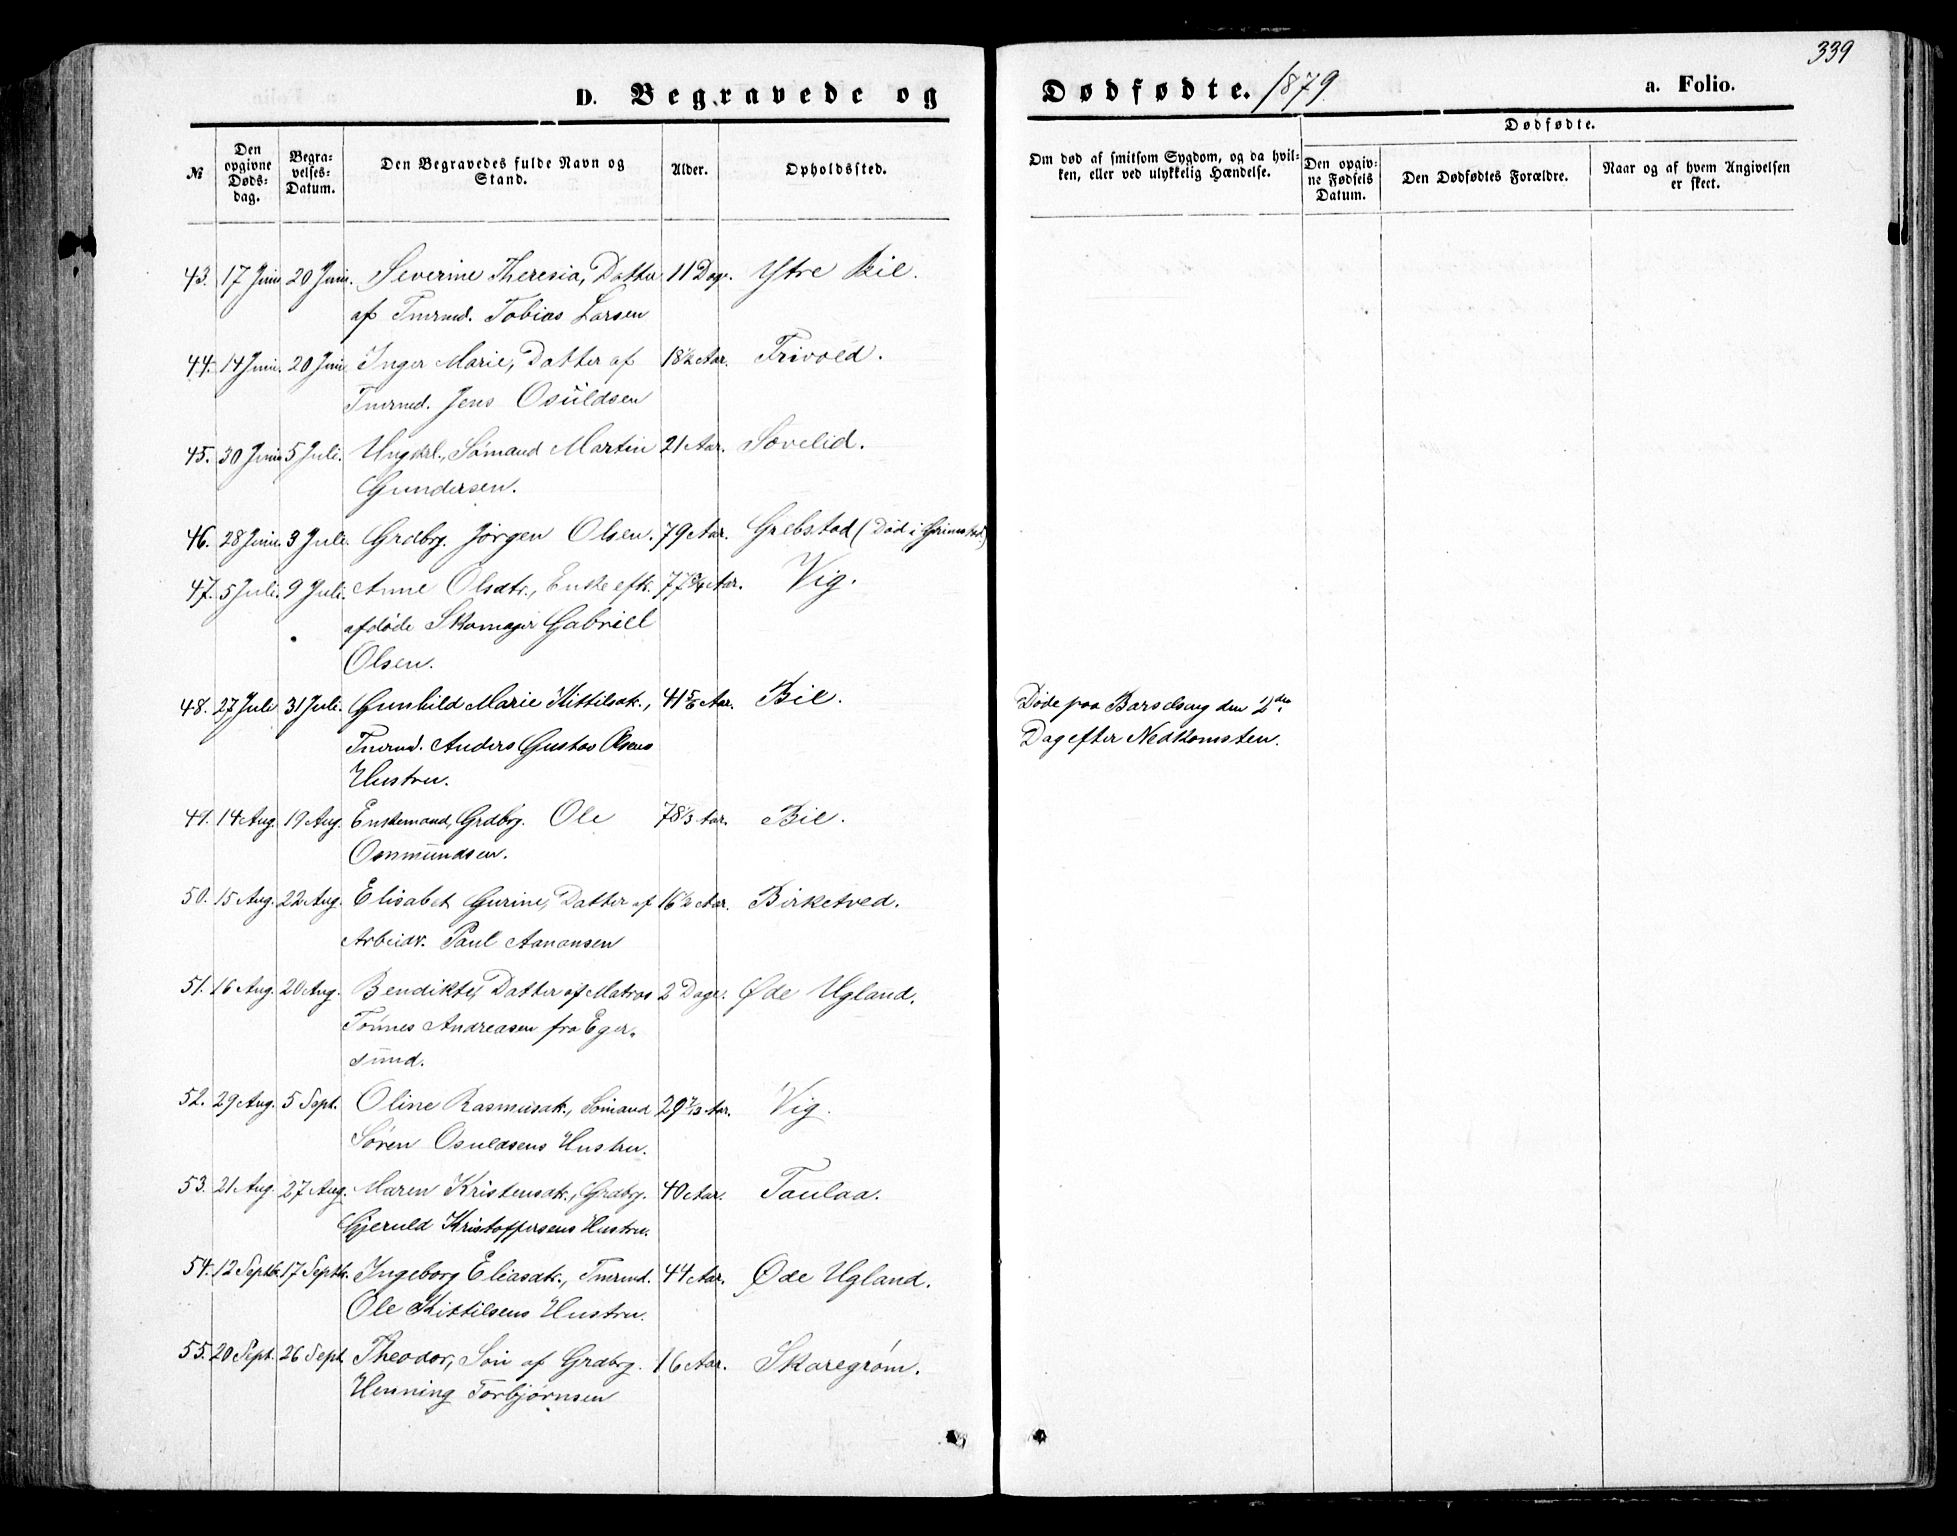 339
D. Begravede og
Dødfødte. 1879.
a. Folio.
№
Den opgivne Døds-dag.
Begra-velses-Datum.
Den Begravedes fulde Navn og Stand.
Alder.
Opholdssted.
Om død af smitsom Sygdom, og da hvil-
ken, eller ved ulykkelig Hændelse.
Dødfødte.
Den opgiv-ne Fødsels Datum.
Den Dødfødtes Forældre.
Naar og af hvem Angivelsen er skeet.
43. 17 Juni 20 Juni. Severine Theresia, Datter 11 Dage. Ytre Bie.
af Tmrmd. Tobias Larsen
44. 14 Juni. 20 Juni Inger Marie, Datter af 18½ Aar. Frivold.
Tmrmd. Jens Osuldsen
45. 30 Juni 5 Juli. Ungkrl., Sømand Martin 21 Aar. Sævelid.
Gundersen.
46. 28 Juni. 3 Juli. Grdbrg. Jørgen Olsen. 79 Aar. Grebstad (Død i Grimstad)
47. 5 Juli. 9 Juli. Anne Olsdtr., Enke eft. 77 Aar. Vig.
afdøde Skomager Gabriel
Olsen.
48. 27 Juli 31 Juli. Gunhild Marie Kittilsdt., 41 5/6 Aar. Bie. Døde paa Barselseng den 2den
Tmrmd. Anders Gustav Olsens Dag efter Nedkomsten.
Hustru.
49. 14 Aug. 19 Aug. Enkemand, Grdbrg. Ole 78⅓ Aar. Bie.
Osmundsen.
50. 15 Aug. 22 Aug. Elisabet Gurine, Datter af 16½ Aar. Birketved.
Arbeidr. Paul Aanonsen
51. 16 Aug. 20 Aug. Bendikte, Datter af Matros 2 Dage. Øde Ugland.
Tønnes Andreasen fra Eger-
sund.
52. 29 Aug. 5 Sept. Oline Rasmusdt., Sømand 29 Aar. Vig.
Søren Osuldsens Hustru.
53. 21 Aug. 27 Aug. Maren Kristensdt., Grdbrg. 40 Aar. Taulaa.
Gjeruld Kristoffersens Hustru.
54. 12 Septb. 17 Septb. Ingeborg Eliasdt., Tmrmd. 44 Aar. Øde Ugland.
Ole Kittilsens Hustru.
55. 20 Sept. 26 Sept Theodor, Søn af Grdbrg. 16 Aar. Skaregrøm.
Henning Torbjørnsen